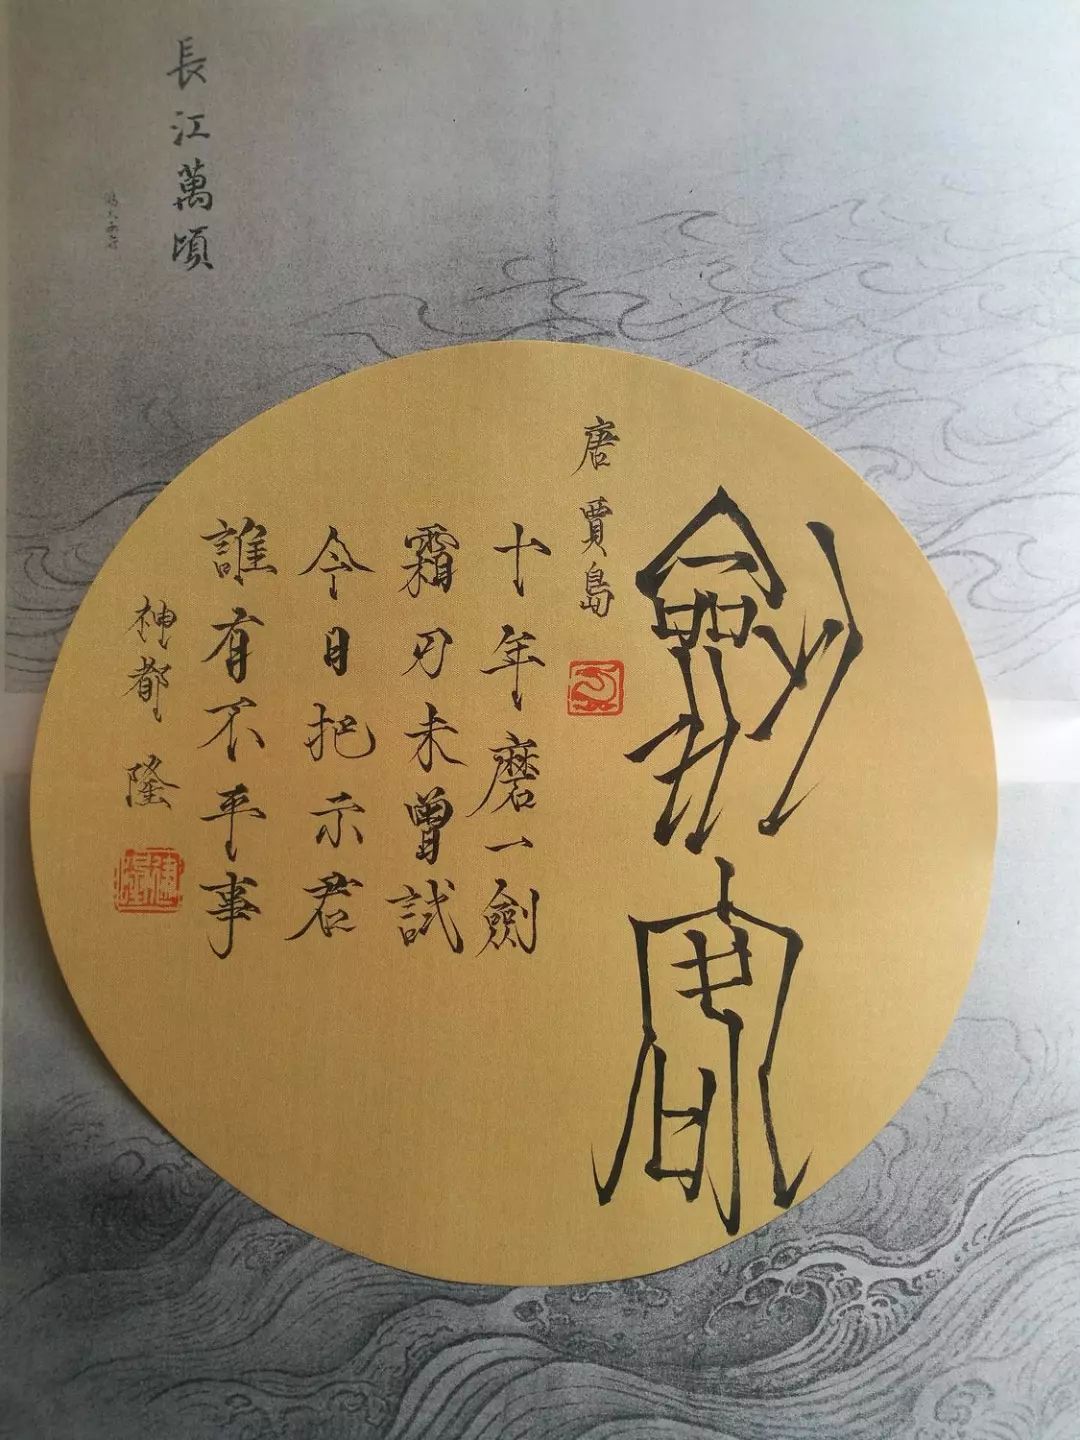 劍客
唐 賈島
十年磨一劍
霜刃未曾試
今日把示君
誰有不平事
神都 隆
長江萬頃